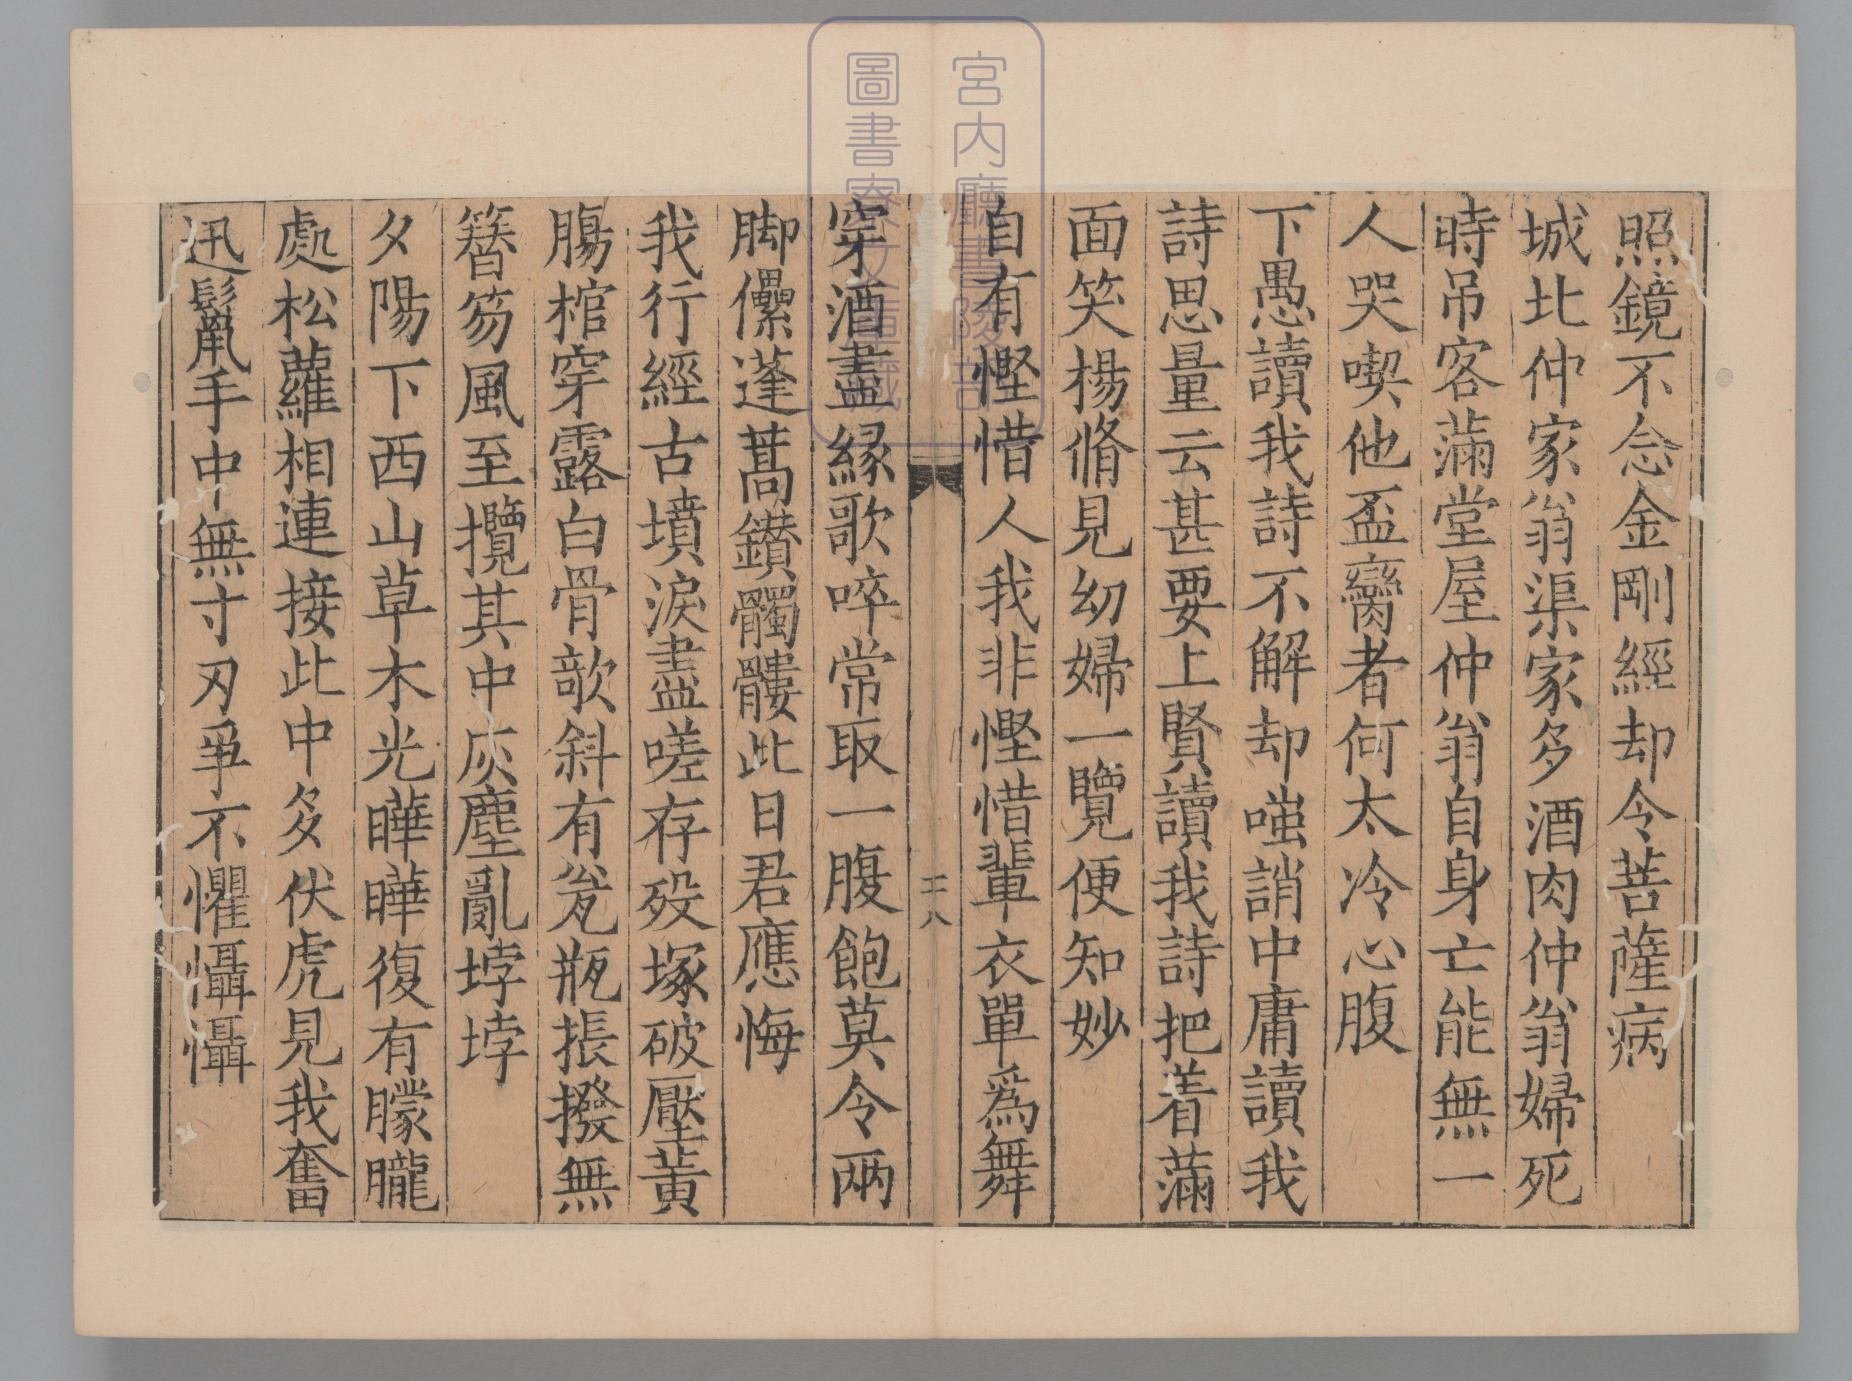 照鏡不念金剛經却令菩薩病
城北仲家翁渠家多酒肉仲翁婦死
時吊客滿堂屋仲翁自身亡能無一
人哭喫他盃臠者何太冷心腹
下愚讀我詩不解却嗤誚中庸讀我
詩思量云甚要上賢讀我詩把着滿
面笑楊脩見幼婦一覽便知妙
自有慳惜人我非慳惜輩衣單爲舞
二八
穿酒盡緣歌啐常取一腹飽莫令兩
脚儽蓬蒿鑽髑髏此日君應悔
我行經古墳淚盡嗟存歿塚破壓黃
腸棺穿露白骨欹斜有瓮瓶掁撥無
簪笏風至攬其中灰塵亂㘄㘄
夕陽下西山草木光曄曄復有朦朧
處松蘿相連接此中多伏虎見我奮
迅鬛手中無寸刃爭不懼懾懾
宮内廳書陵部
圖書寮文庫藏